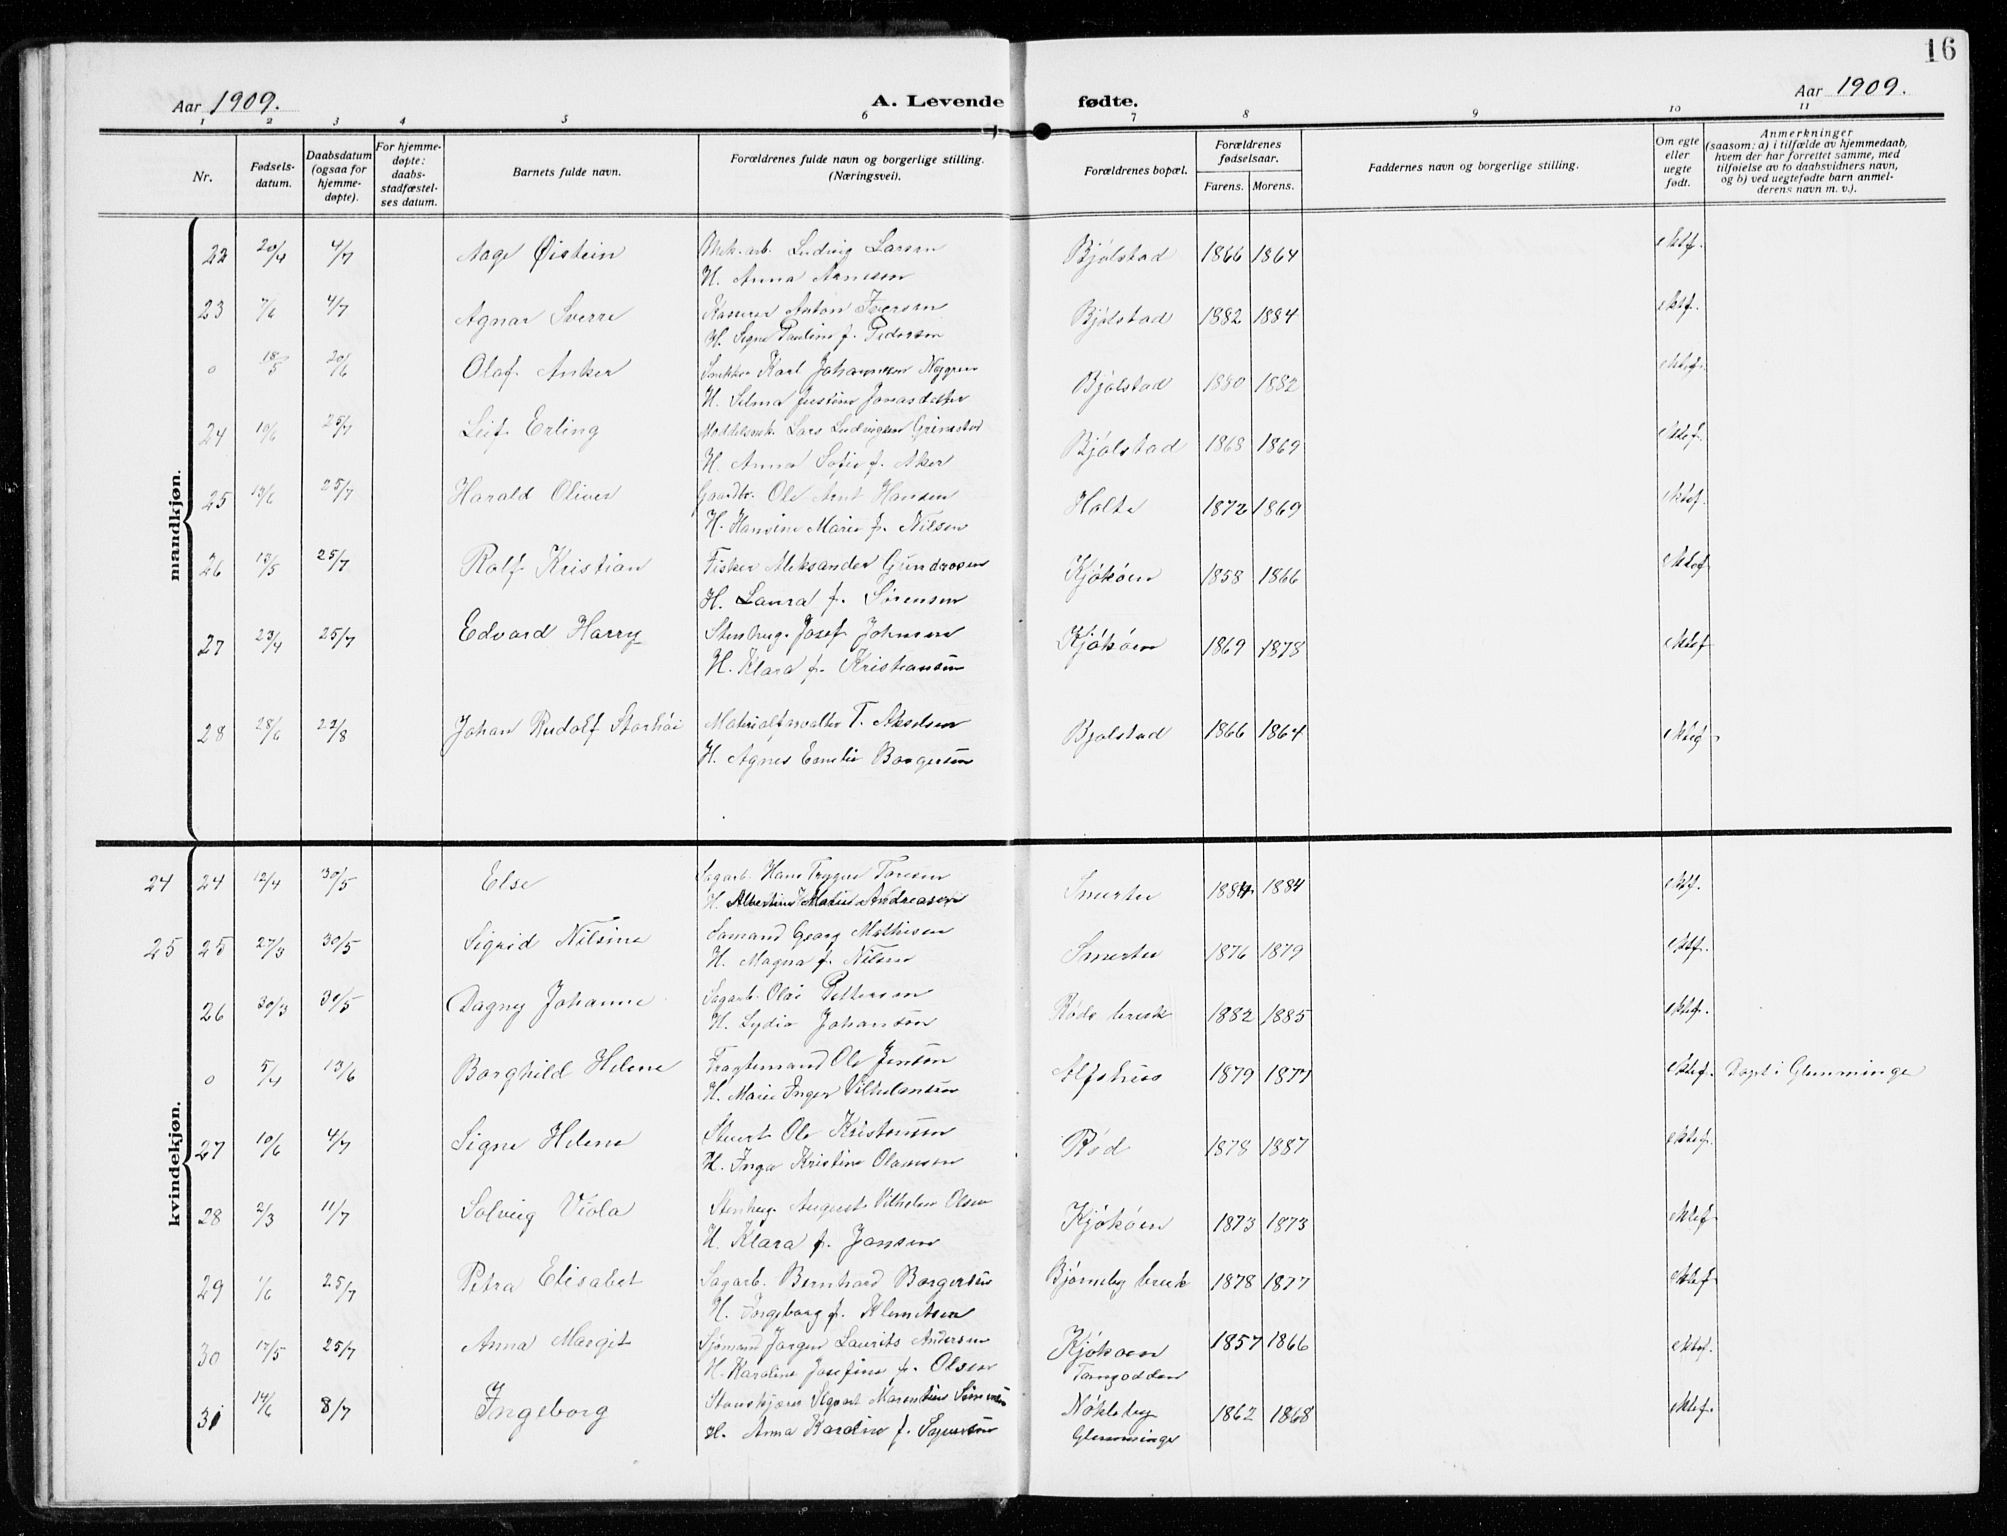 16
Aar 1909. A. Levende fødte. Aar 1909.
1 2 3 4 5 6 7 8 9 10 11
Nr.
Fødsels-
datum.
Daabsdatum
(ogsaa for
hjemme-
døpte).
For hjemme-
døpte:
daabs-
stadfæstel-
ses datum.
Barnets fulde navn.
Forældrenes fulde navn og borgerlige stilling.
(Næringsvei).
Forældrenes bopæl.
Forældrenes
fødselsaar.
Farens. Morens.
Faddernes navn og borgerlige stilling.
Om egte
eller
uegte
født.
Anmerkninger
(saasom: a) i tilfælde av hjemmedaab,
hvem der har forrettet samme, med
tilføielse av to daabsvidners navn,
og b) ved uegtefødte barn anmel-
derens navn m. v.).
mandkjøn.
22 20/4 4/7 Aage Øistein Mek.arb. Ludvig Larsen Bjølstad 1866 1864 Ektf.
H. Anna Arnesen
23 7/6 4/7 Agnar Sverre Anton Iversen Bjølstad 1882 1884 Ektf.
H. Signe Pauline f. Pedersen
o 18/5 20/6 Olaf Anker Snekker Karl Johannesen Nygren Bjølstad 1880 1882 Ektef.
H. Selma Justine Jonasdatter
24 10/6 25/7 Leif Erling Modelsnek. Lars Ludvigsen Grimstad Bjølstad 1868 1869 Ektef.
H. Anna Sofie f. Aker
25 13/6 25/7 Harald Oliver Gaardbr. Ole Arnt Hansen Holte 1872 1869 Ektef.
H. Hansine Marie f. Nilsen
26 13/5 25/7 Rolf Kristian Fisker Aleksander Gundersen Kjøkøen 1858 1866 Ektef
H. Laura f. Sørensen
27 23/4 25/7 Edvard Harry Stenhug. Josef Johnsen Kjøkøen 1869 1878 Ektef
H. Klara f. Kristiansen
28 28/6 22/8 Johan Rudolf Storhøi Materialforvalter T. Akselsen Bjølstad 1866 1864 Ekteg
H. Agnes Emelie Borgersen
kvindekjøn.
24 24 12/4 30/5 Else Sagarb. Hans Trygve Toresen Smertu 1884 1884 Ektf.
H. Albertine Marie Andreasen
25 25 27/3 30/5 Sigrid Nilsine Sømand Georg Mathisen Smertu 1876 1879 Ektf.
H. Magna f. Nilsen
26 30/3 30/5 Dagny Johanne Sagarb. Olai Pettersen Røds bruk 1882 1885 Ektef.
H. Lydia Johansen
o 5/4 13/6 Borghild Helene Fragtemand Ole Jensen Alfshus 1879 1877 Ektef. Døpt i Glemminge
H. Marie Inger Vilhelmsen
27 10/6 4/7 Signe Helene Stuert Ole Kristensen Rød 1878 1887 Ektef.
H. Inga Kristine Olausen
28 2/3 11/7 Solveig Viola Stenhug. August Vilhelm Olsen Kjøkøen 1873 1873 Ektef
H. Klara f. Jansen
29 1/6 25/7 Petra Elisabet Sagarb. Bernhard Borgersen Bjørneby bruk 1878 1877 Ektef
H. Ingeborg f. Klemetsen
30 17/5 25/7 Anna Margit Sjømand Jørgen Laurits Andersen Kjøkøen 1857 1866 Ektef.
H. Karoline Josefine f. Olsen Tangodden
31 14/6 8/7 Ingeborg Sigvart Nøkleby 1862 1868 Ektef.
H. Anna Karoline f. Glemminge